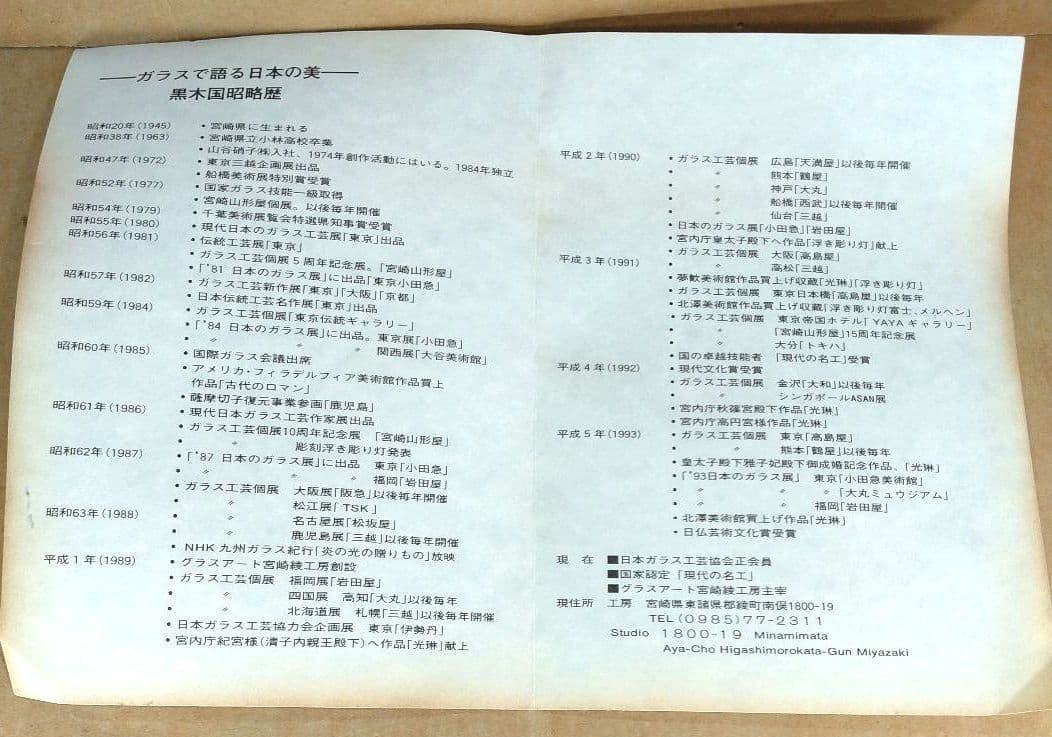 ——ガラスで語る日本の美——
黒木国昭略歴
昭和20年(1945) •宮崎県に生まれる
昭和38年(1963) •宮崎県立小林高校卒業
•山谷硝子㈱入社、1974年創作活動にはいる。1984年独立
昭和47年(1972) •東京三越企画展出品
•船橋美術展特別賞受賞
昭和52年(1977) •国家ガラス技能一級取得
•宮崎山形屋個展。以後毎年開催
昭和54年(1979) •千葉美術展覧会特選県知事賞受賞
昭和55年(1980) •現代日本のガラス工芸展「東京」出品
昭和56年(1981) •伝統工芸展「東京」
•ガラス工芸個展5周年記念展。「宮崎山形屋」
•「'81 日本のガラス展」に出品「東京小田急」
昭和57年(1982) •ガラス工芸新作展「東京」「大阪」「京都」
•日本伝統工芸名作展「東京」出品
昭和59年(1984) •ガラス工芸個展「東京伝統ギャラリー」
•「'84 日本のガラス展」に出品。東京展「小田急」
〃 〃 〃 関西展「大谷美術館」
昭和60年(1985) •国際ガラス会議出席
•アメリカ・フィラデルフィア美術館作品買上
作品「古代のロマン」
•薩摩切子復元事業参画「鹿児島」
昭和61年(1986) •現代日本ガラス工芸作家展出品
•ガラス工芸個展10周年記念展 「宮崎山形屋」
• 〃 彫刻浮き彫り灯発表
昭和62年(1987) •「'87 日本のガラス展」に出品 東京「小田急」
• 〃 〃 福岡「岩田屋」
•ガラス工芸個展 大阪展「阪急」以後毎年開催
• 〃 松江展「TSK」
昭和63年(1988) • 〃 名古屋展「松坂屋」
• 〃 鹿児島展「三越」以後毎年開催
•NHK九州ガラス紀行「炎の光の贈りもの」放映
平成1年(1989) •グラスアート宮崎綾工房創設
•ガラス工芸個展 福岡展「岩田屋」
• 〃 四国展 高知「大丸」以後毎年
• 〃 北海道展 札幌「三越」以後毎年開催
•日本ガラス工芸協力会企画展 東京「伊勢丹」
•宮内庁紀宮様(清子内親王殿下)へ作品「光琳」献上
平成2年(1990) •ガラス工芸個展 広島「天満屋」以後毎年開催
• 〃 熊本「鶴屋」
• 〃 神戸「大丸」
• 〃 船橋「西武」以後毎年開催
• 〃 仙台「三越」
•日本のガラス展「小田急」「岩田屋」
•宮内庁皇太子殿下へ作品「浮き彫り灯」献上
平成3年(1991) •ガラス工芸個展 大阪「高島屋」
• 〃 高松「三越」
•夢歓美術館作品買上げ収蔵「光琳」「浮き彫り灯」
•ガラス工芸個展 東京日本橋「高島屋」以後毎年
•北澤美術館作品買上げ収蔵「浮き彫り灯富士、メルヘン」
•ガラス工芸個展 東京帝国ホテル「YAYAギャラリー」
• 〃 「宮崎山形屋」15周年記念展
• 〃 大分「トキハ」
•国の卓越技能者 「現代の名工」受賞
平成4年(1992) •現代文化賞受賞
•ガラス工芸個展 金沢「大和」以後毎年
• 〃 シンガポールASAN展
•宮内庁秋篠宮殿下作品「光琳」
•宮内庁高円宮様作品「光琳」
平成5年(1993) •ガラス工芸個展 東京「高島屋」
• 〃 熊本「鶴屋」以後毎年
•皇太子殿下雅子妃殿下御成婚記念作品、「光琳」
•「'93日本のガラス展」 東京「小田急美術館」
• 〃 〃 〃 「大丸ミュウジアム」
• 〃 〃 福岡「岩田屋」
•北澤美術館買上げ作品「光琳」
•日仏芸術文化賞受賞
現 在 ■日本ガラス工芸協会正会員
■国家認定「現代の名工」
■グラスアート宮崎綾工房主宰
現住所 工房 宮崎県東諸県郡綾町南俣1800-19
TEL(0985)77-2311
Studio 1800-19 Minamimata
Aya-Cho Higashimorokata-Gun Miyazaki